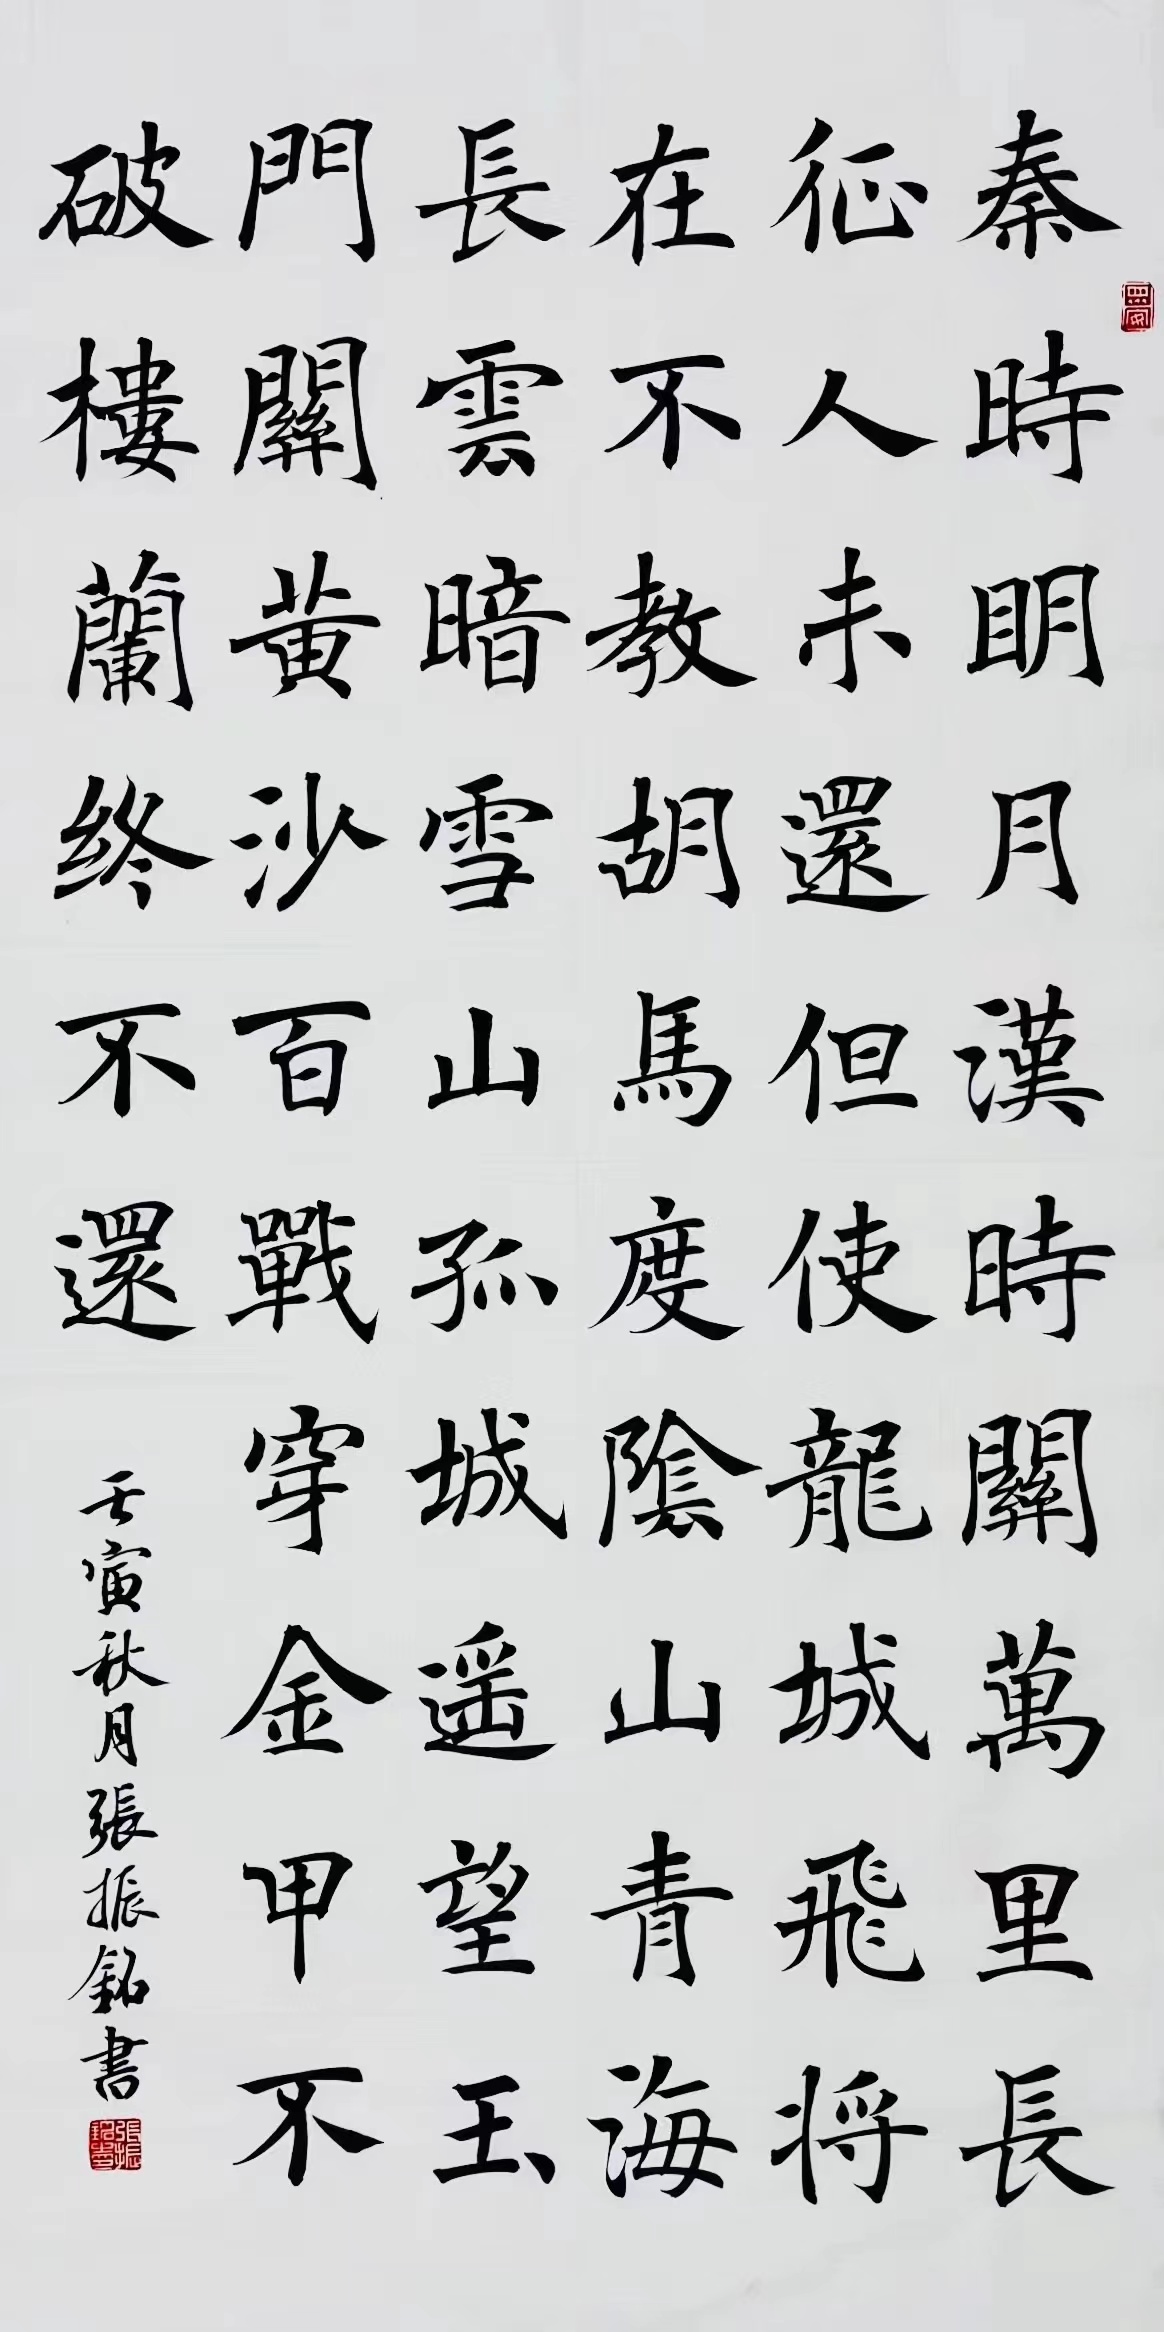 秦時明月漢時關萬里長
征人未還但使龍城飛将
在不教胡馬度陰山青海
長雲暗雪山孤城遥望玉
門關黃沙百戰穿金甲不
破樓蘭终不還
壬寅秋月張振銘書
張振銘